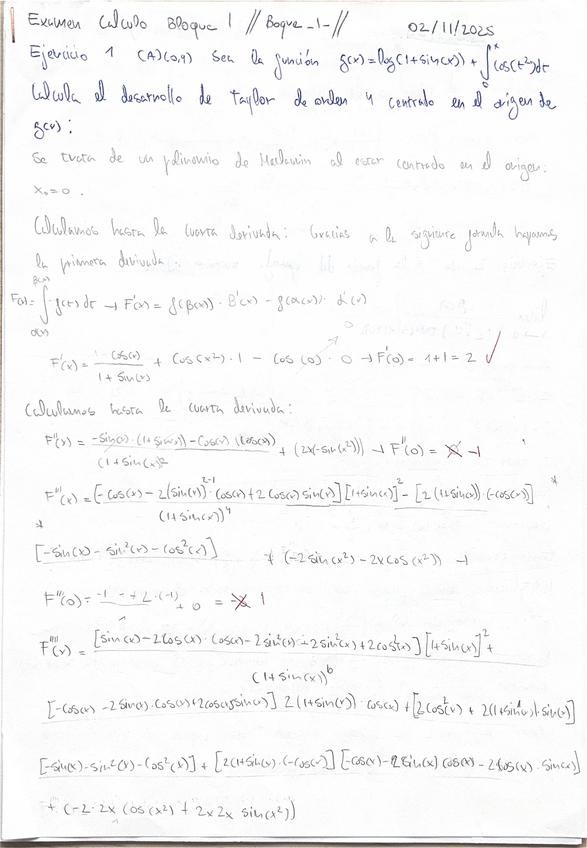 Examen Calculo Bloque 1 // Boque -1- // 02/11/2025
Ejercicio 1 (A)(0,9) Sea la función g(x)=log(1+sin(x)) + ∫₀ˣ cos(t²)dt
Calcula el desarrollo de Taylor de orden 4 centrado en el origen de
g(x):
Se trata de un polinomio de Maclaurin al estar centrado en el origen:
x₀=0.
Calculamos hasta la cuarta derivada: Gracias a la siguiente formula hayamos
la primera derivada:
F(x)= ∫_{α(x)}^{β(x)} f(t) dt → F'(x) = f(β(x))·β'(x) - f(α(x))·α'(x)
F'(x)= cos(x) / 1+sin(x) + cos(x²)·1 - cos(0)·0 → F'(0)= 1+1=2 ✓
Calculamos hasta la cuarta derivada:
F''(x)= -sin(x)·(1+sin(x))-cos(x)(cos(x)) / (1+sin(x))² + (2x(-sin(x²))) → F''(0) = -1
F'''(x) = [-cos(x) - 2(sin(x))²⁻¹·cos(x)+2cos(x)sin(x)][1+sin(x)]² - [2(1+sin(x))·(-cos(x))] * / (1+sin(x))⁴
* [-sin(x) - sin²(x) - cos²(x)] + (-2sin(x²) - 2xcos(x²)) →
F'''(0)= -1 - +2·(-1) / 1 + 0 = 1
F''''(x) = [sin(x)-2cos(x)·cos(x)-2sin²(x)+2sin²(x)+2cos²(x)][1+sin(x)]² + / (1+sin(x))⁶
[-cos(x) -2sin(x)·cos(x)+2cos(x)sin(x)] 2(1+sin(x))·cos(x) + [2cos²(x) + 2(1+sin(x))·sin(x)]
[-sin(x)-sin²(x)-cos²(x)] + [2(1+sin(x)·(-cos(x)] [-cos(x)-2sin(x)cos(x) - 2cos(x)·sin(x)]
+ (-2·2x cos(x²) + 2x2x sin(x²))